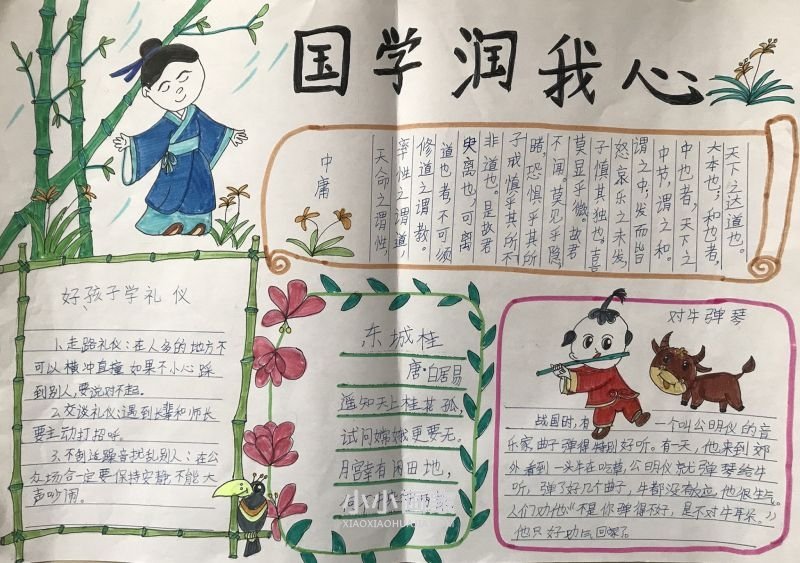 国学润我心
中庸
天命之谓性，
率性之谓道，
修道之谓教。
道也者，不可须
臾离也，可离
非道也。是故君
子戒慎乎其所不
睹，恐惧乎其所
不闻。莫见乎隐，
莫显乎微。故君
子慎其独也。喜
怒哀乐之未发，
谓之中；发而皆
中节，谓之和。
中也者，天下之
大本也；和也者，
天下之达道也。
好孩子学礼仪
1.走路礼仪：在人多的地方不
可以横冲直撞如果不小心踩
到别人，要说对不起。
2.交谈礼仪：遇到长辈和师长
要主动打招呼。
3.不制造噪音扰乱别人：在公
众场合一定要保持安静不能大
声吵闹。
东城桂
唐·白居易
遥知天上桂花孤，
试问嫦娥更要无。
月宫幸有闲田地，
对牛弹琴
战国时，有一个叫公明仪的音
乐家曲子弹得特别好听。有一天，他来到郊
外看到一头牛在吃草，公明仪就弹琴给牛
听，弹了好几个曲子，牛都没有反应他很生气。
人们劝他“不是你弹得不好，是不对牛耳朵。”
他只好叹气回家了。
小小